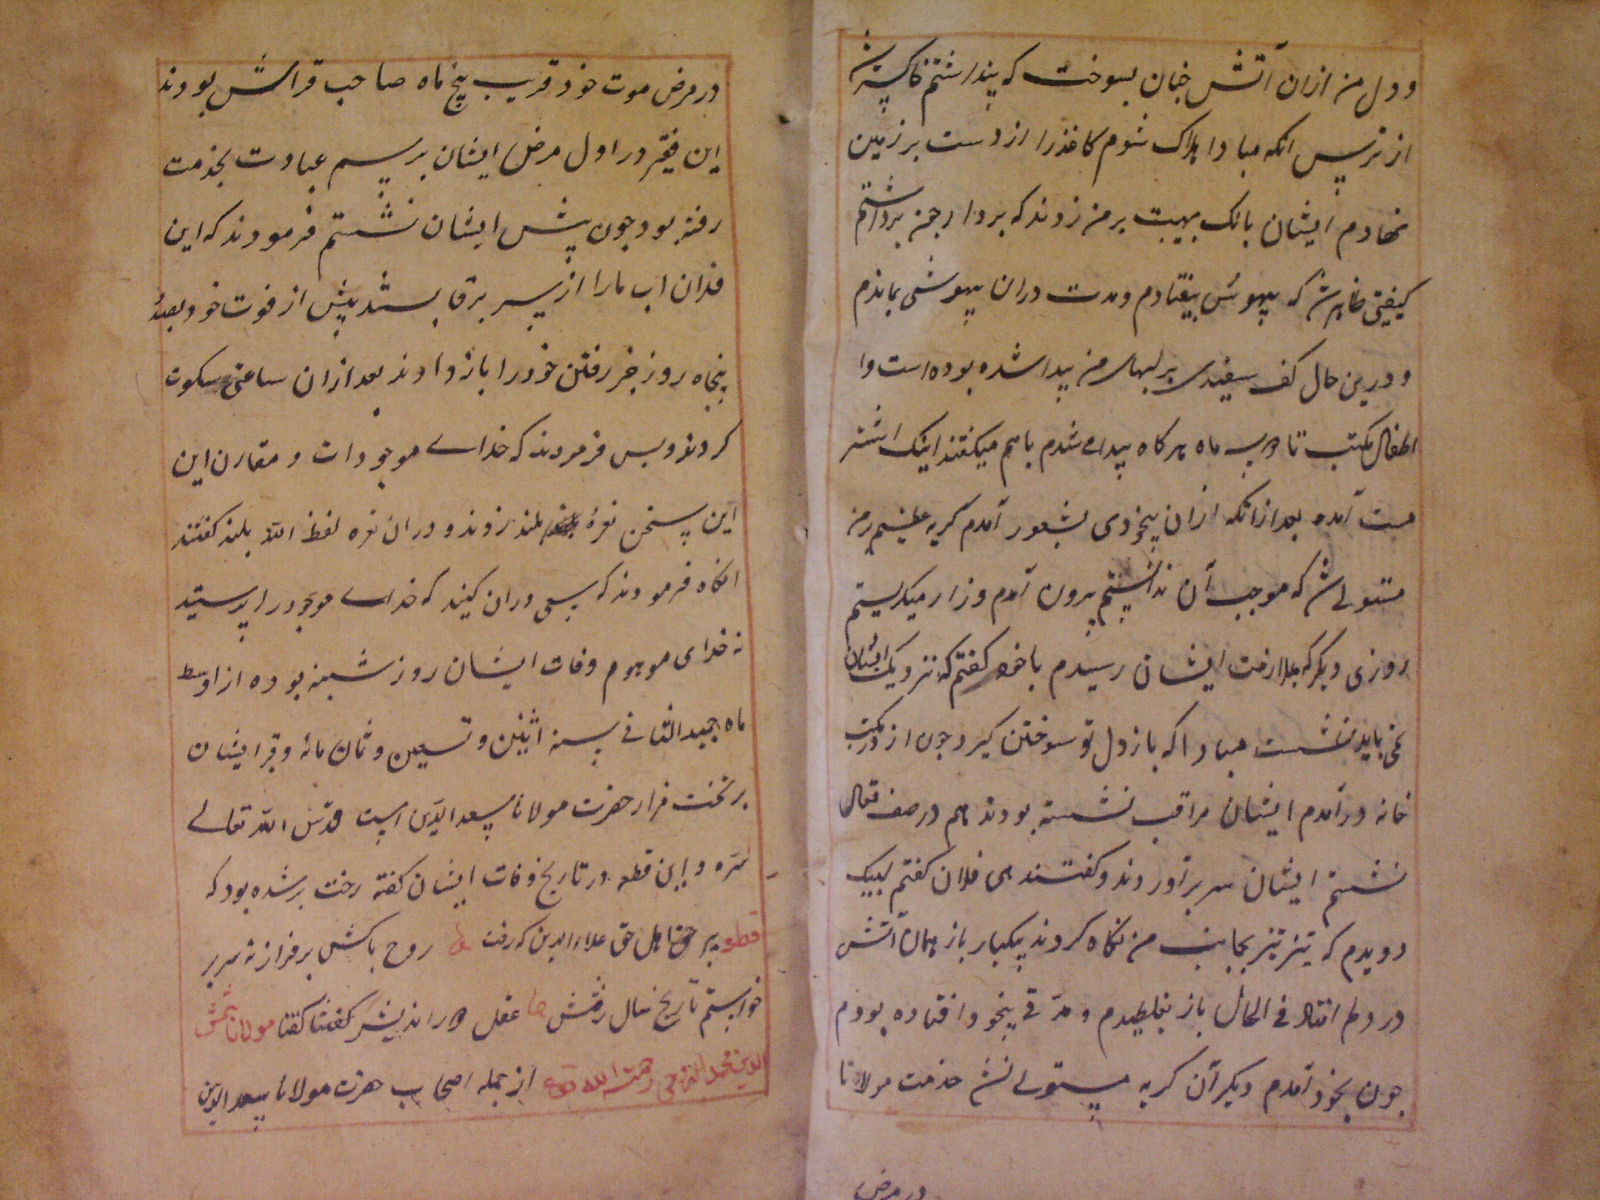 و دل من ازان آتش چنان بسوخت که پنداشتم خاکستر شد
از ترس انکه مبادا هلاک شوم کاغذ را از دست بر زمین
نهادم ایشان بانک بهیبت بر من زدند که بردار چون برداشتم
کیفیتی ظاهر شد که بیهوش بیفتادم و مدت دران بیهوشی بماندم
و درین حال کف سفیدی بر لبهای من پیدا شده بوده است و ا
اطفال مکتب تا ماه هرکاه پیدا می شدم باهم میکفتند اینک اشتر
مست آمده بعد ازانکه ازان بیخودی بشعور آمدم کریه عظیم بر من
مستولی شد که موجب آن ندانستم بیرون آمدم و زار میکریستم
روزی دیکر که بملازمت ایشان رسیدم با خود کفتم که نزدیک ایشان
نمی باید نشست مبادا که باز دل تو سوختن کیرد چون از در مکتب
خانه درآمدم ایشان مراقب نشسته بودند هم در صف نعال
نشستم ایشان سر برآوردند و کفتند هی فلان کفتم لبیک
دویدم که تیز تیز بجانب من نکاه کردند یکبار باز همان آتش
در دلم افتاد فی الحال باز بغلطیدم و مدتی بیخود افتاده بودم
چون بخود آمدم دیکر آن کریه مستولی شد خدمت مولانا
در مرض
در مرض موت خود قریب پنج ماه صاحب فراش بودند
این فقیر در اول مرض ایشان برسم عیادت بخدمت
رفته بود چون پیش ایشان نشستم فرمودند که این
ما را از سر پیش از فوت خود بعد
پنجاه روز خبر رفتن خود را باز دادند بعد ازان ساعتی سکوت
کردند و پس فرمودند که خدای موجودات و مقارن این
این سخن نعره بلند زدند و دران نعره لفظ الله بلند کفتند
انکاه فرمودند که سعی دران کنید که خدای موجود را پرستید
نه خدای موهوم وفات ایشان روز شنبه بوده از اوسط
ماه جمید الثانی سنه اثنین و تسعین و ثمان مائه و قبر ایشان
بر تخت مزار حضرت مولانا سعدالدین است قدس الله تعالی
سره و این قطعه در تاریخ وفات ایشان کفته رخت بر شده بود که
قطعه پیر حق اهل حق علاء الدین که رفت روح پاکش بر فراز نه سریر
خواستم تاریخ سال رفتنش عقل دور اندیش کفتا کفتا مولانا شمس
الدین محمد رحمة الله از جمله اصحاب حضرت مولانا سعدالدین